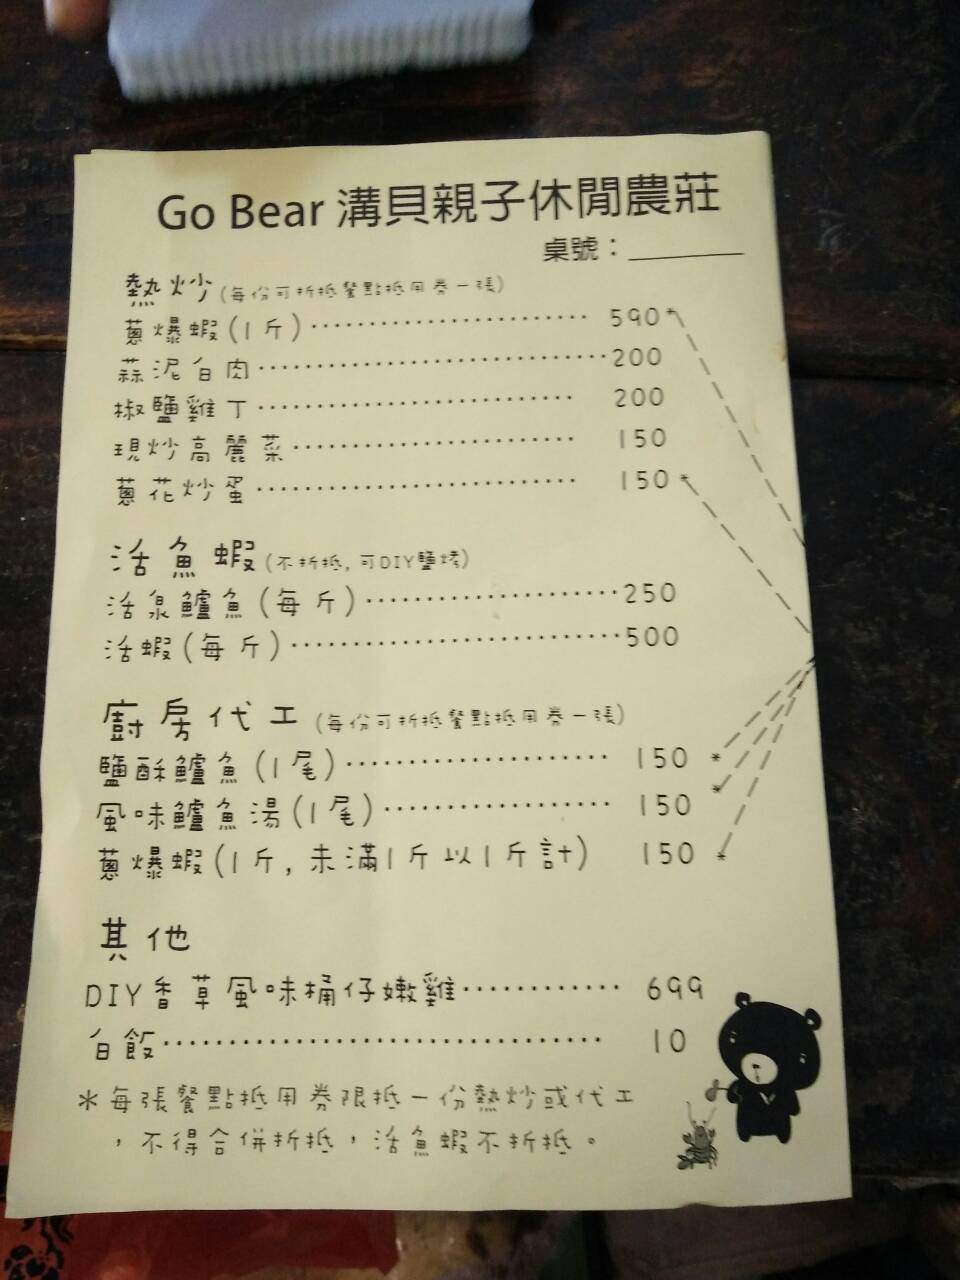 Go Bear 溝貝親子休閒農莊
桌號：______
熱炒(每份可折抵餐點抵用券一張)
蔥爆蝦(1斤)‧‧‧‧‧‧‧‧‧‧‧‧‧‧‧‧‧‧‧‧‧‧‧‧‧‧‧‧ 590*
蒜泥白肉‧‧‧‧‧‧‧‧‧‧‧‧‧‧‧‧‧‧‧‧‧‧‧‧‧‧‧‧‧‧‧‧‧‧200
椒鹽雞丁‧‧‧‧‧‧‧‧‧‧‧‧‧‧‧‧‧‧‧‧‧‧‧‧‧‧‧‧‧‧ 200
現炒高麗菜‧‧‧‧‧‧‧‧‧‧‧‧‧‧‧‧‧‧‧‧‧‧‧‧‧‧‧ 150
蔥花炒蛋‧‧‧‧‧‧‧‧‧‧‧‧‧‧‧‧‧‧‧‧‧‧‧‧‧‧‧‧‧‧ 150*
活魚蝦(不折抵,可DIY鹽烤)
活泉鱸魚(每斤)‧‧‧‧‧‧‧‧‧‧‧‧‧‧‧‧‧‧‧‧‧‧250
活蝦(每斤)‧‧‧‧‧‧‧‧‧‧‧‧‧‧‧‧‧‧‧‧‧‧‧‧‧‧‧‧500
廚房代工(每份可折抵餐點抵用券一張)
鹽酥鱸魚(1尾)‧‧‧‧‧‧‧‧‧‧‧‧‧‧‧‧‧‧‧‧‧ 150 *
風味鱸魚湯(1尾)‧‧‧‧‧‧‧‧‧‧‧‧‧‧‧‧‧‧ 150 *
蔥爆蝦(1斤,未滿1斤以1斤計) 150 *
其他
DIY香草風味桶仔嫩雞‧‧‧‧‧‧‧‧‧‧‧‧ 699
白飯‧‧‧‧‧‧‧‧‧‧‧‧‧‧‧‧‧‧‧‧‧‧‧‧‧‧‧‧‧‧‧‧‧ 10
*每張餐點抵用券限抵一份熱炒或代工
，不得合併折抵，活魚蝦不折抵。